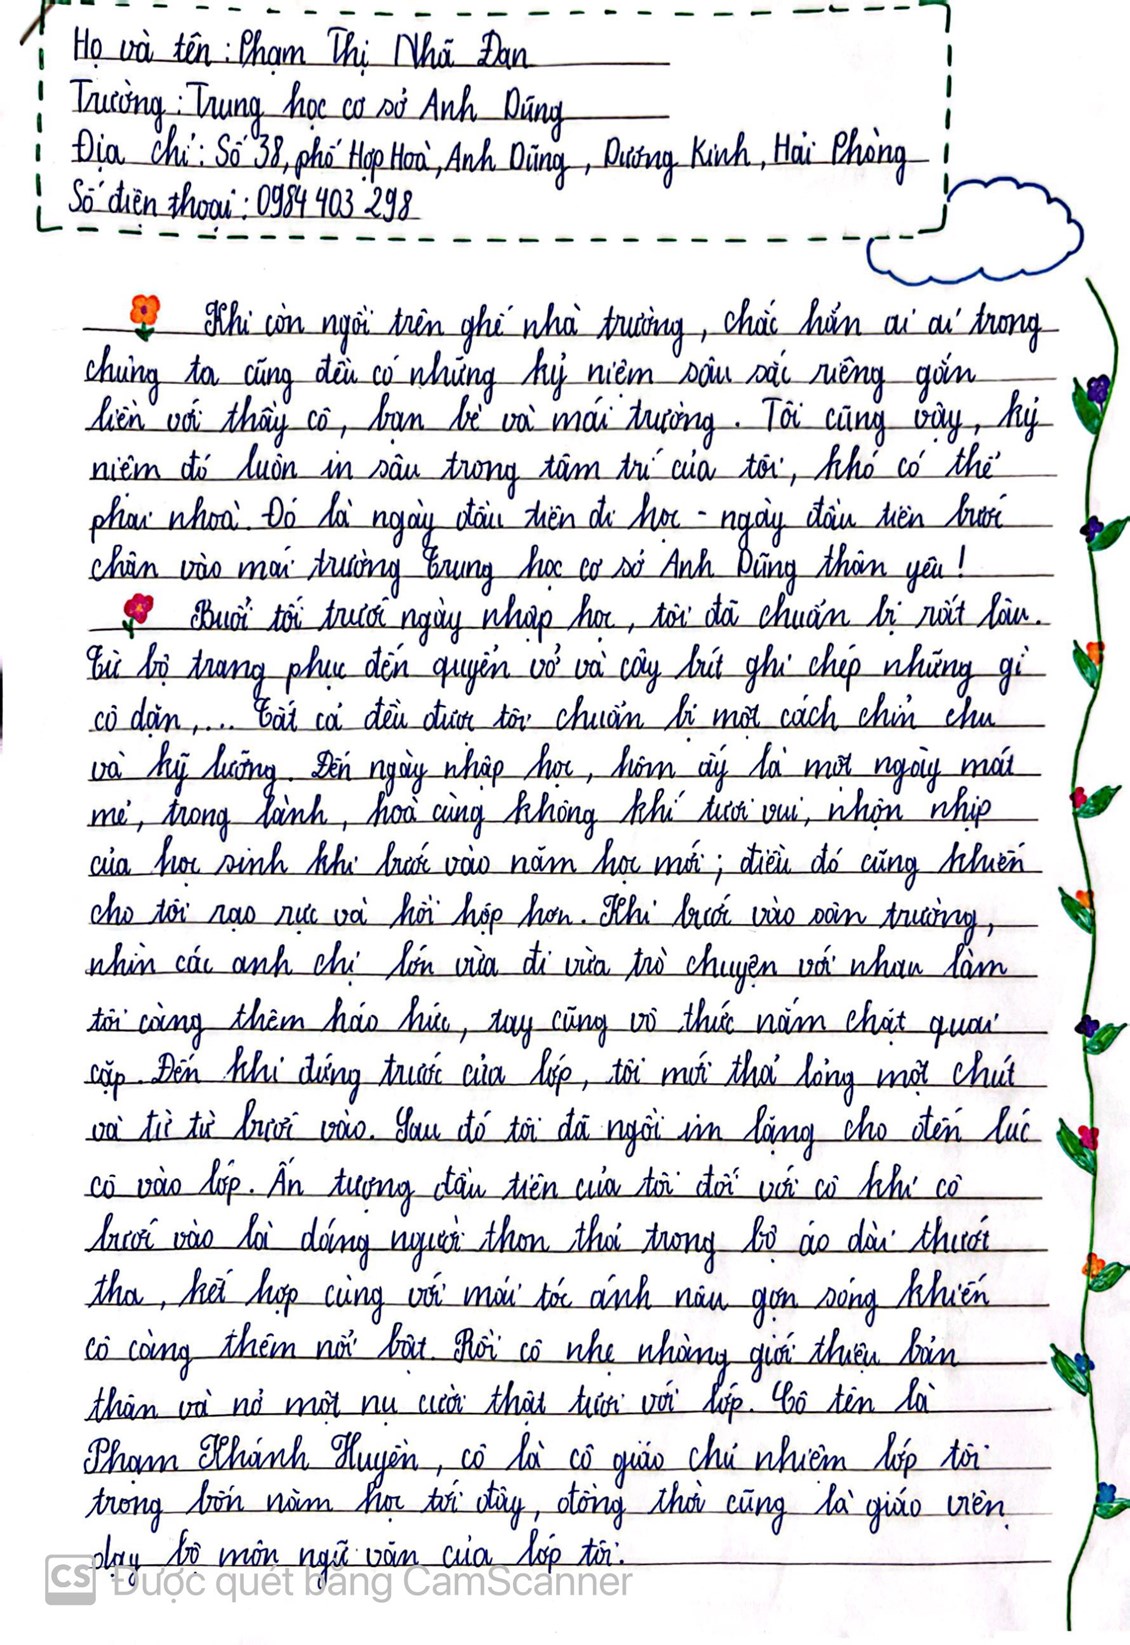 Họ và tên : Phạm Thị Nhã Đan
Trường : Trung học cơ sở Anh Dũng
Địa chỉ : Số 38, phố Hợp Hoà, Anh Dũng, Dương Kinh, Hải Phòng
Số điện thoại : 0984 403 298
Khi còn ngồi trên ghế nhà trường, chắc hẳn ai ai trong
chúng ta cũng đều có những kỷ niệm sâu sắc riêng gắn
liền với thầy cô, bạn bè và mái trường. Tôi cũng vậy, kỷ
niệm đó luôn in sâu trong tâm trí của tôi, khó có thể
phai nhoà. Đó là ngày đầu tiên đi học - ngày đầu tiên bước
chân vào mái trường Trung học cơ sở Anh Dũng thân yêu!
Buổi tối trước ngày nhập học, tôi đã chuẩn bị rất lâu.
Từ bộ trang phục đến quyển vở và cây bút ghi chép những gì
cô dặn,... Tất cả đều được tôi chuẩn bị một cách chỉn chu
và kỹ lưỡng. Đến ngày nhập học, hôm ấy là một ngày mát
mẻ, trong lành, hoà cùng không khí tươi vui, nhộn nhịp
của học sinh khi bước vào năm học mới; điều đó cũng khiến
cho tôi rạo rực và hồi hộp hơn. Khi bước vào sân trường,
nhìn các anh chị lớn vừa đi vừa trò chuyện với nhau làm
tôi càng thêm háo hức, tay cũng vô thức nắm chặt quai
cặp. Đến khi đứng trước cửa lớp, tôi mới thả lỏng một chút
và từ từ bước vào. Sau đó tôi đã ngồi im lặng cho đến lúc
cô vào lớp. Ấn tượng đầu tiên của tôi đối với cô khi cô
bước vào là dáng người thon thả trong bộ áo dài thướt
tha, kết hợp cùng với mái tóc ánh nâu gợn sóng khiến
cô càng thêm nổi bật. Rồi cô nhẹ nhàng giới thiệu bản
thân và nở một nụ cười thật tươi với lớp. Cô tên là
Phạm Khánh Huyền, cô là cô giáo chủ nhiệm lớp tôi
trong bốn năm học tới đây, đồng thời cũng là giáo viên
dạy bộ môn ngữ văn của lớp tôi.
CS Được quét bằng CamScanner